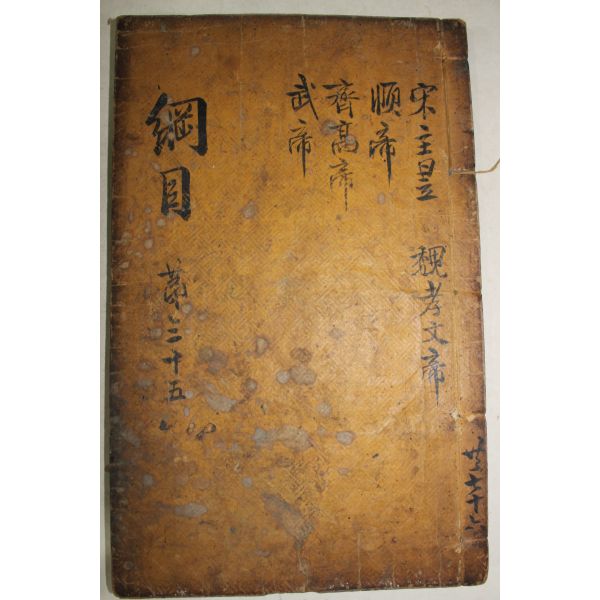 宋主昱 魏孝文帝
順帝
齊高帝
武帝
綱目 第三十五
共七十六